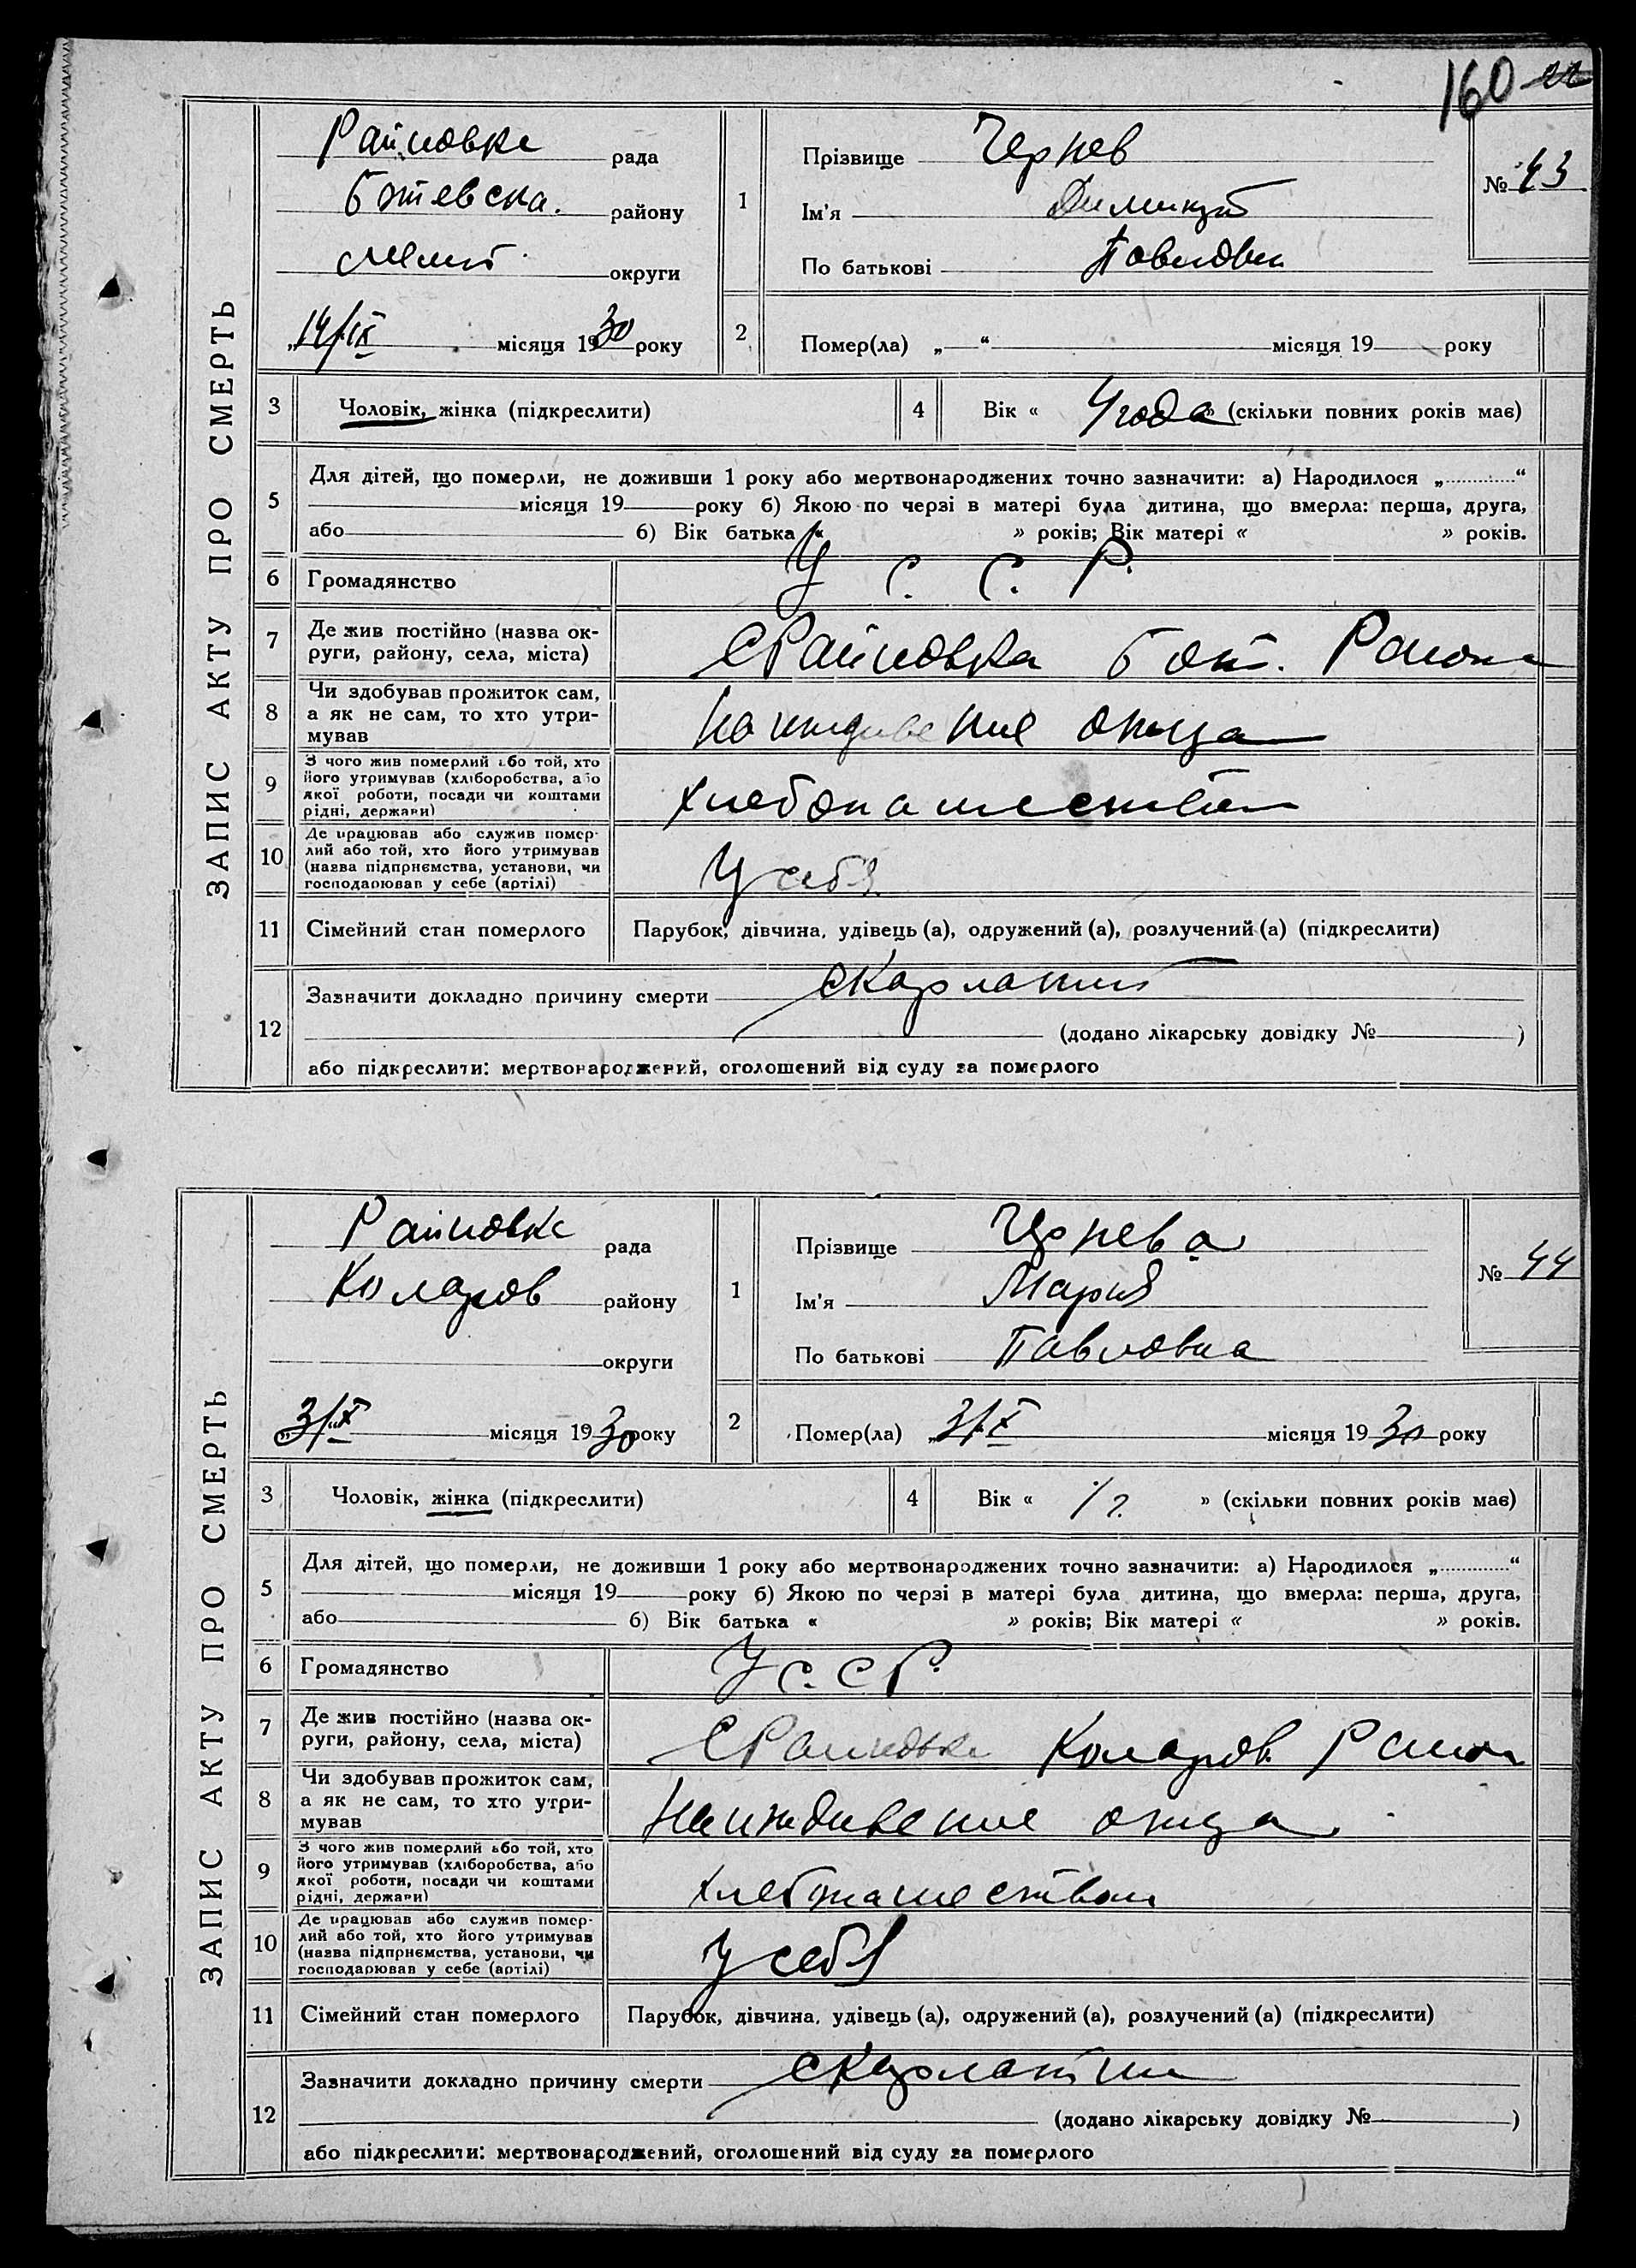 160 22
ЗАПИС АКТУ ПРО СМЕРТЬ
Райновка рада
Ботевска. району
округи
„14/IX місяця 1930 року
1
Прізвище Чернев
Ім'я Димитрий
По батькові Павлович
№ 43
2
Помер(ла) „ “ місяця 19 року
3 Чоловік, жінка (підкреслити)
4 Вік « 4 года » (скільки повних років має)
5
Для дітей, що померли, не доживши 1 року або мертвонароджених точно зазначити: а) Народилося „ “
місяця 19 року б) Якою по черзі в матері була дитина, що вмерла: перша, друга,
або б) Вік батька « » років; Вік матері « » років.
6 Громадянство У С. С. Р.
7 Де жив постійно (назва ок-
руги, району, села, міста)
С Райновка Бот. Район
8 Чи здобував прожиток сам,
а як не сам, то хто утри-
мував
На иждивение отца
9 З чого жив померлий або той, хто
його утримував (хліборобства, або
якої роботи, посади чи коштами
рідні, держави)
Хлебопашеством
10 Де працював або служив помер-
лий або той, хто його утримував
(назва підприємства, установи, чи
господарював у себе (артілі)
У себя
11 Сімейний стан померлого Парубок, дівчина, удівець (а), одружений (а), розлучений (а) (підкреслити)
12
Зазначити докладно причину смерти скарлатин
(додано лікарську довідку № )
або підкреслити: мертвонароджений, оголошений від суду за померлого
ЗАПИС АКТУ ПРО СМЕРТЬ
Райновка рада
Коларов району
округи
„3/X місяця 1930 року
1
Прізвище Чернева
Ім'я Мария
По батькові Павловна
№ 44
2
Помер(ла) „3/X місяця 1930 року
3 Чоловік, жінка (підкреслити)
4 Вік « 1 г. » (скільки повних років має)
5
Для дітей, що померли, не доживши 1 року або мертвонароджених точно зазначити: а) Народилося „ “
місяця 19 року б) Якою по черзі в матері була дитина, що вмерла: перша, друга,
або б) Вік батька « » років; Вік матері « » років.
6 Громадянство У С. С Р.
7 Де жив постійно (назва ок-
руги, району, села, міста)
С Райновка Коларов. Район
8 Чи здобував прожиток сам,
а як не сам, то хто утри-
мував
На иждивение отца
9 З чого жив померлий або той, хто
його утримував (хліборобства, або
якої роботи, посади чи коштами
рідні, держави)
Хлебопашеством
10 Де працював або служив помер-
лий або той, хто його утримував
(назва підприємства, установи, чи
господарював у себе (артілі)
У себя
11 Сімейний стан померлого Парубок, дівчина, удівець (а), одружений (а), розлучений (а) (підкреслити)
12
Зазначити докладно причину смерти скарлатин
(додано лікарську довідку № )
або підкреслити: мертвонароджений, оголошений від суду за померлого